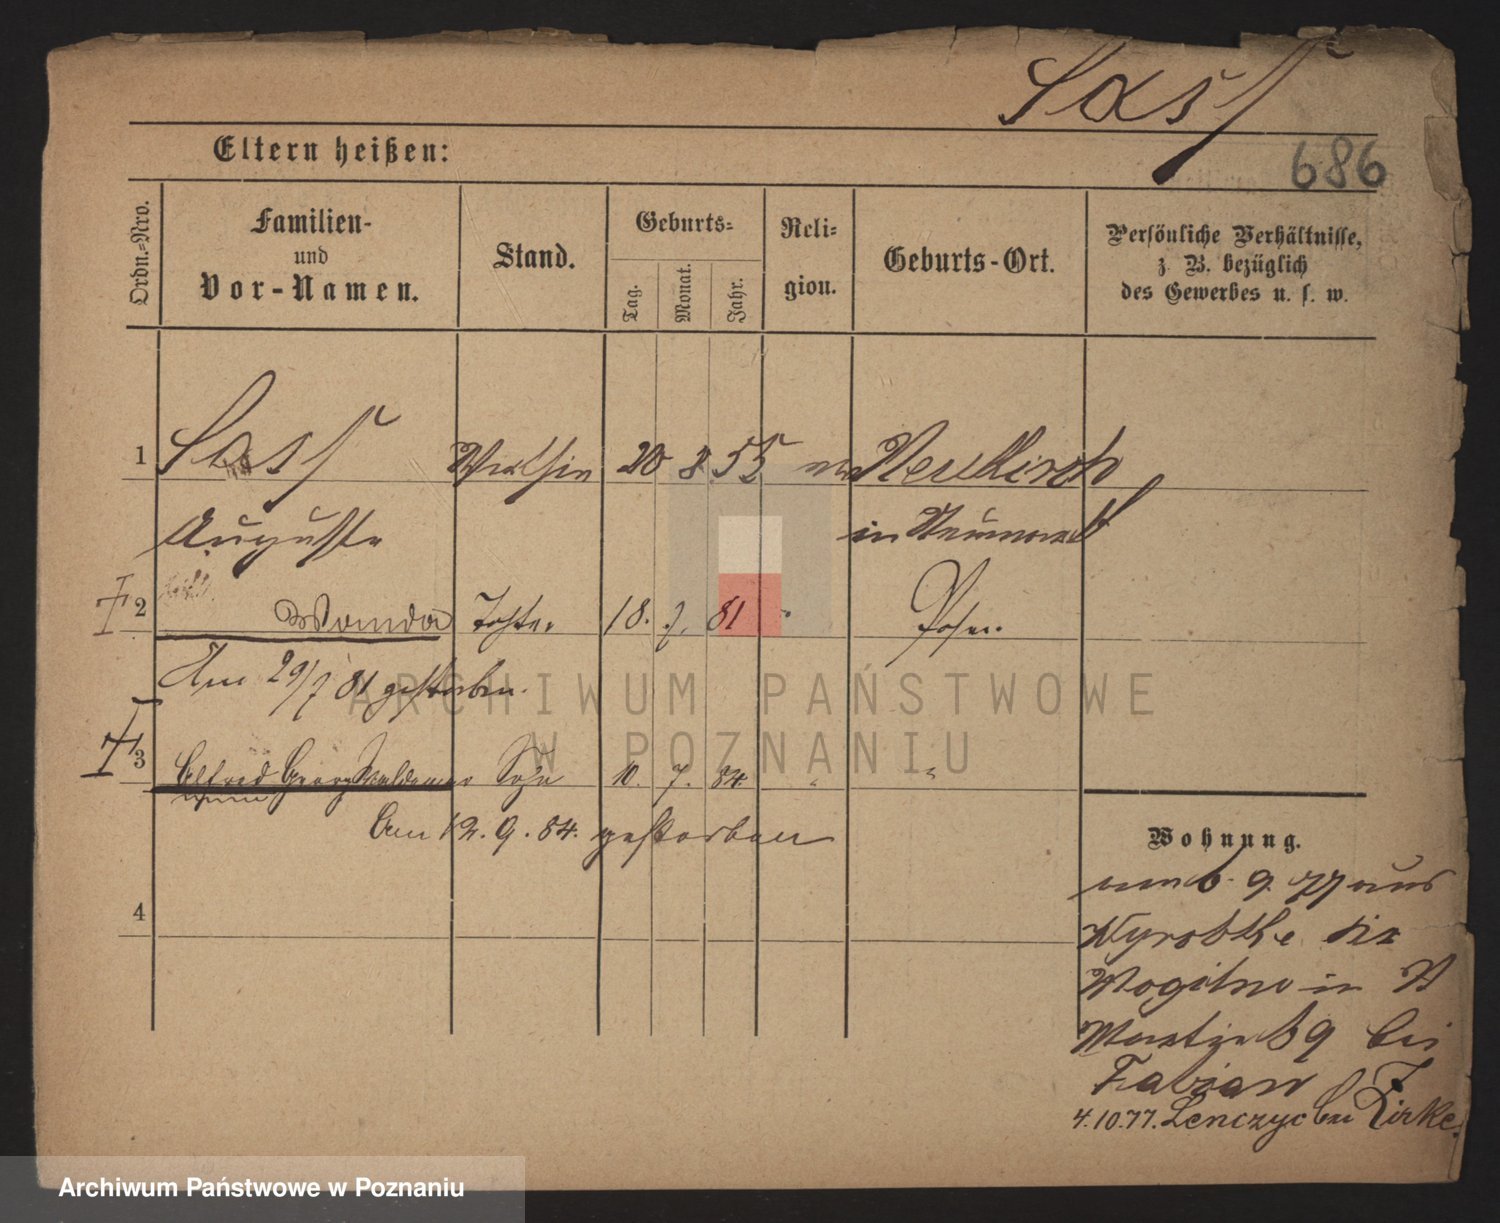 Sass
686
Eltern heißen:
Ordn.-Nro.
Familien-
und
Vor-Namen.
Stand.
Geburts-
Tag.
Monat.
Jahr.
Reli-
gion.
Geburts-Ort.
Persönliche Verhältnisse,
z. B. bezüglich
des Gewerbes u. s. w.
1 Sass 20 8 55 Neukirch
Auguste in
2 Wanda Tochter 18. 7. 81 Posen
Am 29/7 81 gestorben.
3 Alfred Georg Waldemar Sohn 10. 7. 84. "
Am 12. 9. 84. gestorben
4
Wohnung.
6. 9. 77 aus
Mogilno in
St Martin 59 bei
Fabian
4.10.77. Lenczyc bei Zirke.
ARCHIWUM PAŃSTWOWE
W POZNANIU
Archiwum Państwowe w Poznaniu